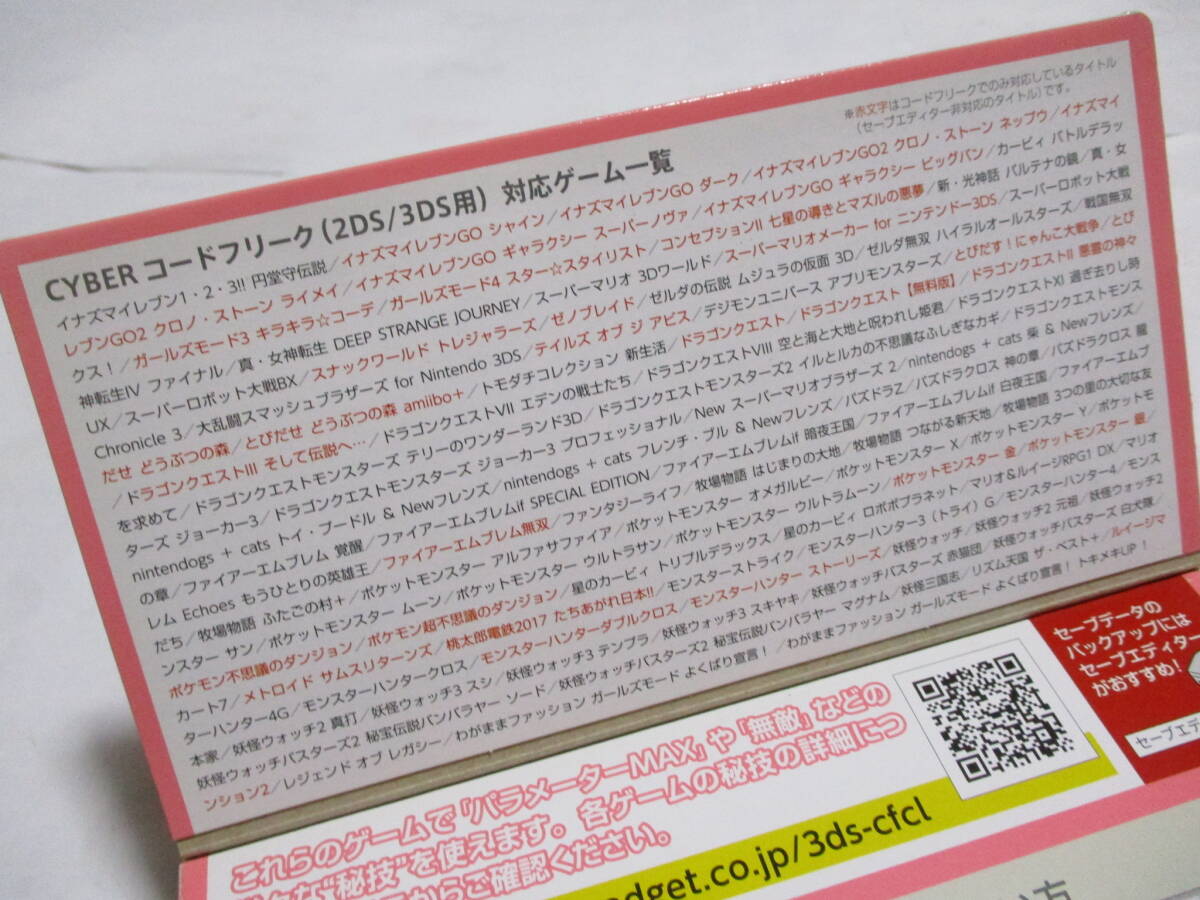 ※赤文字はコードフリークでのみ対応しているタイトル
(セーブエディター非対応のタイトル)です。
CYBER コードフリーク(2DS/3DS用) 対応ゲーム一覧
イナズマイレブン1・2・3!! 円堂守伝説/イナズマイレブンGO シャイン/イナズマイレブンGO ダーク/イナズマイレブンGO2 クロノ・ストーン ネップウ/イナズマイ
レブンGO2 クロノ・ストーン ライメイ/イナズマイレブンGO ギャラクシー スーパーノヴァ/イナズマイレブンGO ギャラクシー ビッグバン/カービィ バトルデラッ
クス!/ガールズモード3 キラキラ☆コーデ/ガールズモード4 スター☆スタイリスト/コンセプションII 七星の導きとマズルの悪夢/新・光神話 パルテナの鏡/真・女
神転生IV ファイナル/真・女神転生 DEEP STRANGE JOURNEY/スーパーマリオ 3Dワールド/スーパーマリオメーカー for ニンテンドー3DS/スーパーロボット大戦
UX/スーパーロボット大戦BX/スナックワールド トレジャラーズ/ゼノブレイド/ゼルダの伝説 ムジュラの仮面 3D/ゼルダ無双 ハイラルオールスターズ/戦国無双
Chronicle 3/大乱闘スマッシュブラザーズ for Nintendo 3DS/テイルズ オブ ジ アビス/デジモンユニバース アプリモンスターズ/とびだす!にゃんこ大戦争/とび
だせ どうぶつの森/とびだせ どうぶつの森 amiibo+/トモダチコレクション 新生活/ドラゴンクエスト/ドラゴンクエスト【無料版】/ドラゴンクエストII 悪霊の神々
/ドラゴンクエストIII そして伝説へ…/ドラゴンクエストVII エデンの戦士たち/ドラゴンクエストVIII 空と海と大地と呪われし姫君/ドラゴンクエストXI 過ぎ去りし時
を求めて/ドラゴンクエストモンスターズ テリーのワンダーランド3D/ドラゴンクエストモンスターズ2 イルとルカの不思議なふしぎなカギ/ドラゴンクエストモンス
ターズ ジョーカー3/ドラゴンクエストモンスターズ ジョーカー3 プロフェッショナル/New スーパーマリオブラザーズ 2/nintendogs + cats 柴 & Newフレンズ/
nintendogs + cats トイ・プードル & Newフレンズ/nintendogs + cats フレンチ・ブル & Newフレンズ/パズドラZ/パズドラクロス 神の章/パズドラクロス 龍
の章/ファイアーエムブレム 覚醒/ファイアーエムブレムif SPECIAL EDITION/ファイアーエムブレムif 暗夜王国/ファイアーエムブレムif 白夜王国/ファイアーエムブ
レム Echoes もうひとりの英雄王/ファイアーエムブレム無双/ファンタジーライフ/牧場物語 はじまりの大地/牧場物語 つながる新天地/牧場物語 3つの里の大切な友
だち/牧場物語 ふたごの村+/ポケットモンスター アルファサファイア/ポケットモンスター オメガルビー/ポケットモンスター X/ポケットモンスター Y/ポケットモ
ンスター サン/ポケットモンスター ムーン/ポケットモンスター ウルトラサン/ポケットモンスター ウルトラムーン/ポケットモンスター 金/ポケットモンスター 銀/
ポケモン不思議のダンジョン/ポケモン超不思議のダンジョン/星のカービィ トリプルデラックス/星のカービィ ロボボプラネット/マリオ&ルイージRPG1 DX/マリオ
カート7/メトロイド サムスリターンズ/桃太郎電鉄2017 たちあがれ日本!!/モンスターストライク/モンスターハンター3(トライ)G/モンスターハンター4/モンス
ターハンター4G/モンスターハンタークロス/モンスターハンターダブルクロス/モンスターハンター ストーリーズ/妖怪ウォッチ/妖怪ウォッチ2 元祖/妖怪ウォッチ2
本家/妖怪ウォッチ2 真打/妖怪ウォッチ3 スシ/妖怪ウォッチ3 テンプラ/妖怪ウォッチ3 スキヤキ/妖怪ウォッチバスターズ 赤猫団/妖怪ウォッチバスターズ 白犬隊/
妖怪ウォッチバスターズ2 秘宝伝説バンバラヤー ソード/妖怪ウォッチバスターズ2 秘宝伝説バンバラヤー マグナム/妖怪三国志/リズム天国 ザ・ベスト+/ルイージマ
ンション2/レジェンド オブ レガシー/わがままファッション ガールズモード よくばり宣言!/わがままファッション ガールズモード よくばり宣言! トキメキUP!
これらのゲームで「パラメーターMAX」や「無敵」などの
"秘技"を使えます。各ゲームの秘技の詳細につ
からご確認ください。
dget.co.jp/3ds-cfcl
セーブデータの
バックアップには
セーブエディター
がおすすめ!
セーブエデ